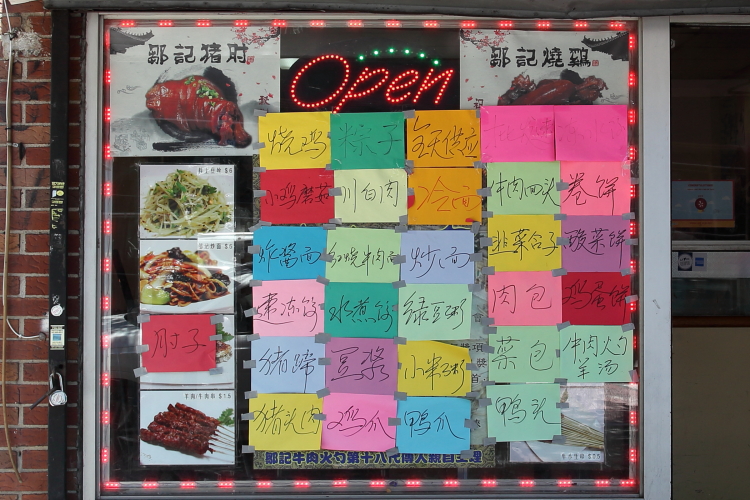 鄒記猪肘
Open
鄒記燒鷄
烧鸡
粽子
全天供应
小鸡蘑菇
川白肉
冷面
牛肉回头
卷饼
炸醬面
红烧牛肉面
炒面
韭菜合子
酸菜饼
速冻饺
水煮饺
绿豆粥
肉包
鸡蛋饼
肘子
猪蹄
豆浆
小米粥
菜包
牛肉火勺
羊汤
猪头肉
鸡爪
鸭爪
鸭头
鄒記牛肉火勺第十八代傳人親自主理